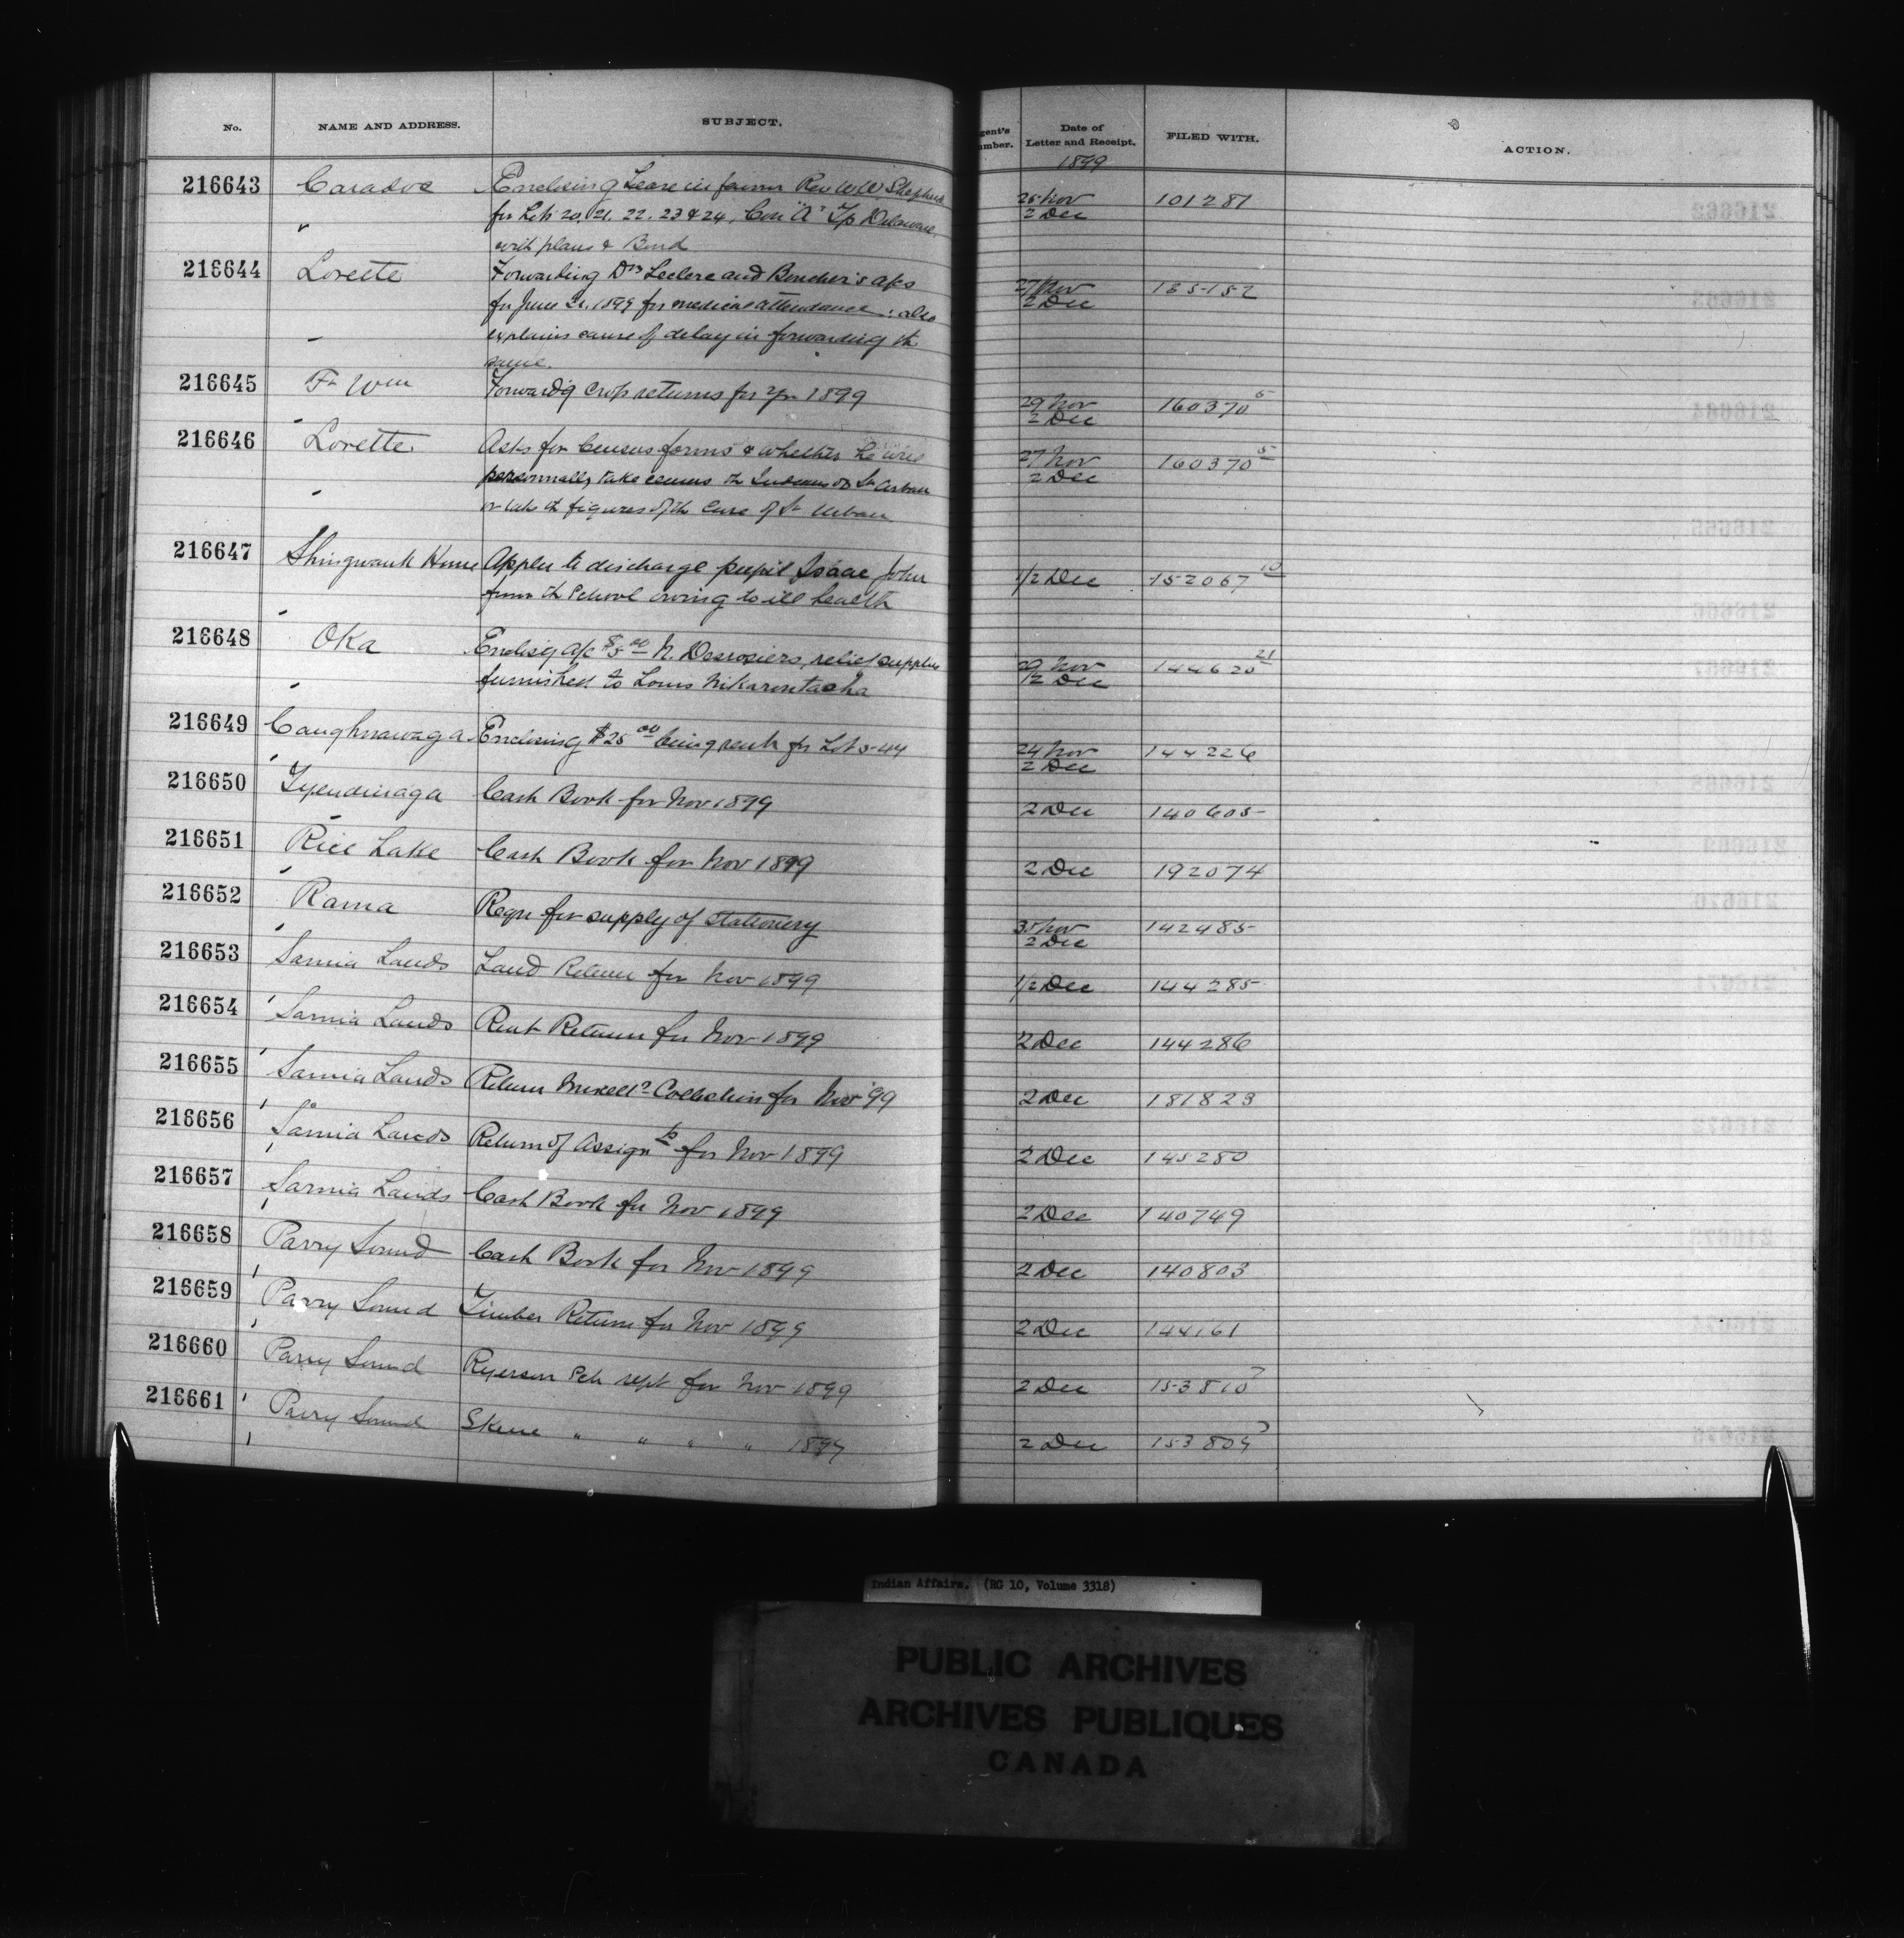 No. NAME AND ADDRESS. SUBJECT. gent's umber. Date of Letter and Receipt. FILED WITH. ACTION.
1899
216643 Caradoc Enclosing Lease in favour Rev W W Shepherd 25 Nov 101287
" for Lots 20, 21, 22, 23 & 24, Con "A" Tp Delaware, 2 Dec
with plans & Bond
216644 Lorette Forwarding Drs Leclerc and Boucher's a/cs 27 Nov 135152
for June 1899 for medical attendance; also 2 Dec
explains cause of delay in forwarding th
same.
216645 Ft Wm Forwardg crop returns for yr 1899 29 Nov 160370 5
2 Dec
216646 Lorette Asks for Census forms & whether he will 27 Nov 160370 5
personally take census th Indians of St Urbain 2 Dec
or take th figures of th Cure of St Urbain
216647 Shingwauk Home Applies to discharge pupil Isaac John 1/2 Dec 152067 10
from th School owing to ill health
216648 Oka Enclosg a/c $5.00 N. Desrosiers, relief supplies 29 Nov 144620 21
furnished to Louis Nikarontasha 1/2 Dec
216649 Caughnawaga Enclosing $25.00 being rent for Lot 5-44 24 Nov 144226
2 Dec
216650 Tyendinaga Cash Book for Nov 1899 2 Dec 140605
216651 Rice Lake Cash Book for Nov 1899 2 Dec 192074
216652 Rama Reqn for supply of stationery 30 Nov 142485
2 Dec
216653 Sarnia Lands Land Return for Nov 1899 1/2 Dec 144285
216654 Sarnia Lands Rent Return for Nov 1899 2 Dec 144286
216655 Sarnia Lands Return Miscells Collection for Nov '99 2 Dec 181823
216656 Sarnia Lands Return of Assignts for Nov 1899 2 Dec 145280
216657 Sarnia Lands Cash Book for Nov 1899 2 Dec 140749
216658 Parry Sound Cash Book for Nov 1899 2 Dec 140803
216659 Parry Sound Timber Return for Nov 1899 2 Dec 144161
216660 Parry Sound Ryerson Sch rept for Nov 1899 2 Dec 153810 7
216661 Parry Sound Skene " " " " 1899 2 Dec 153809 7
Indian Affairs. (RG 10, Volume 3318)
PUBLIC ARCHIVES
ARCHIVES PUBLIQUES
CANADA